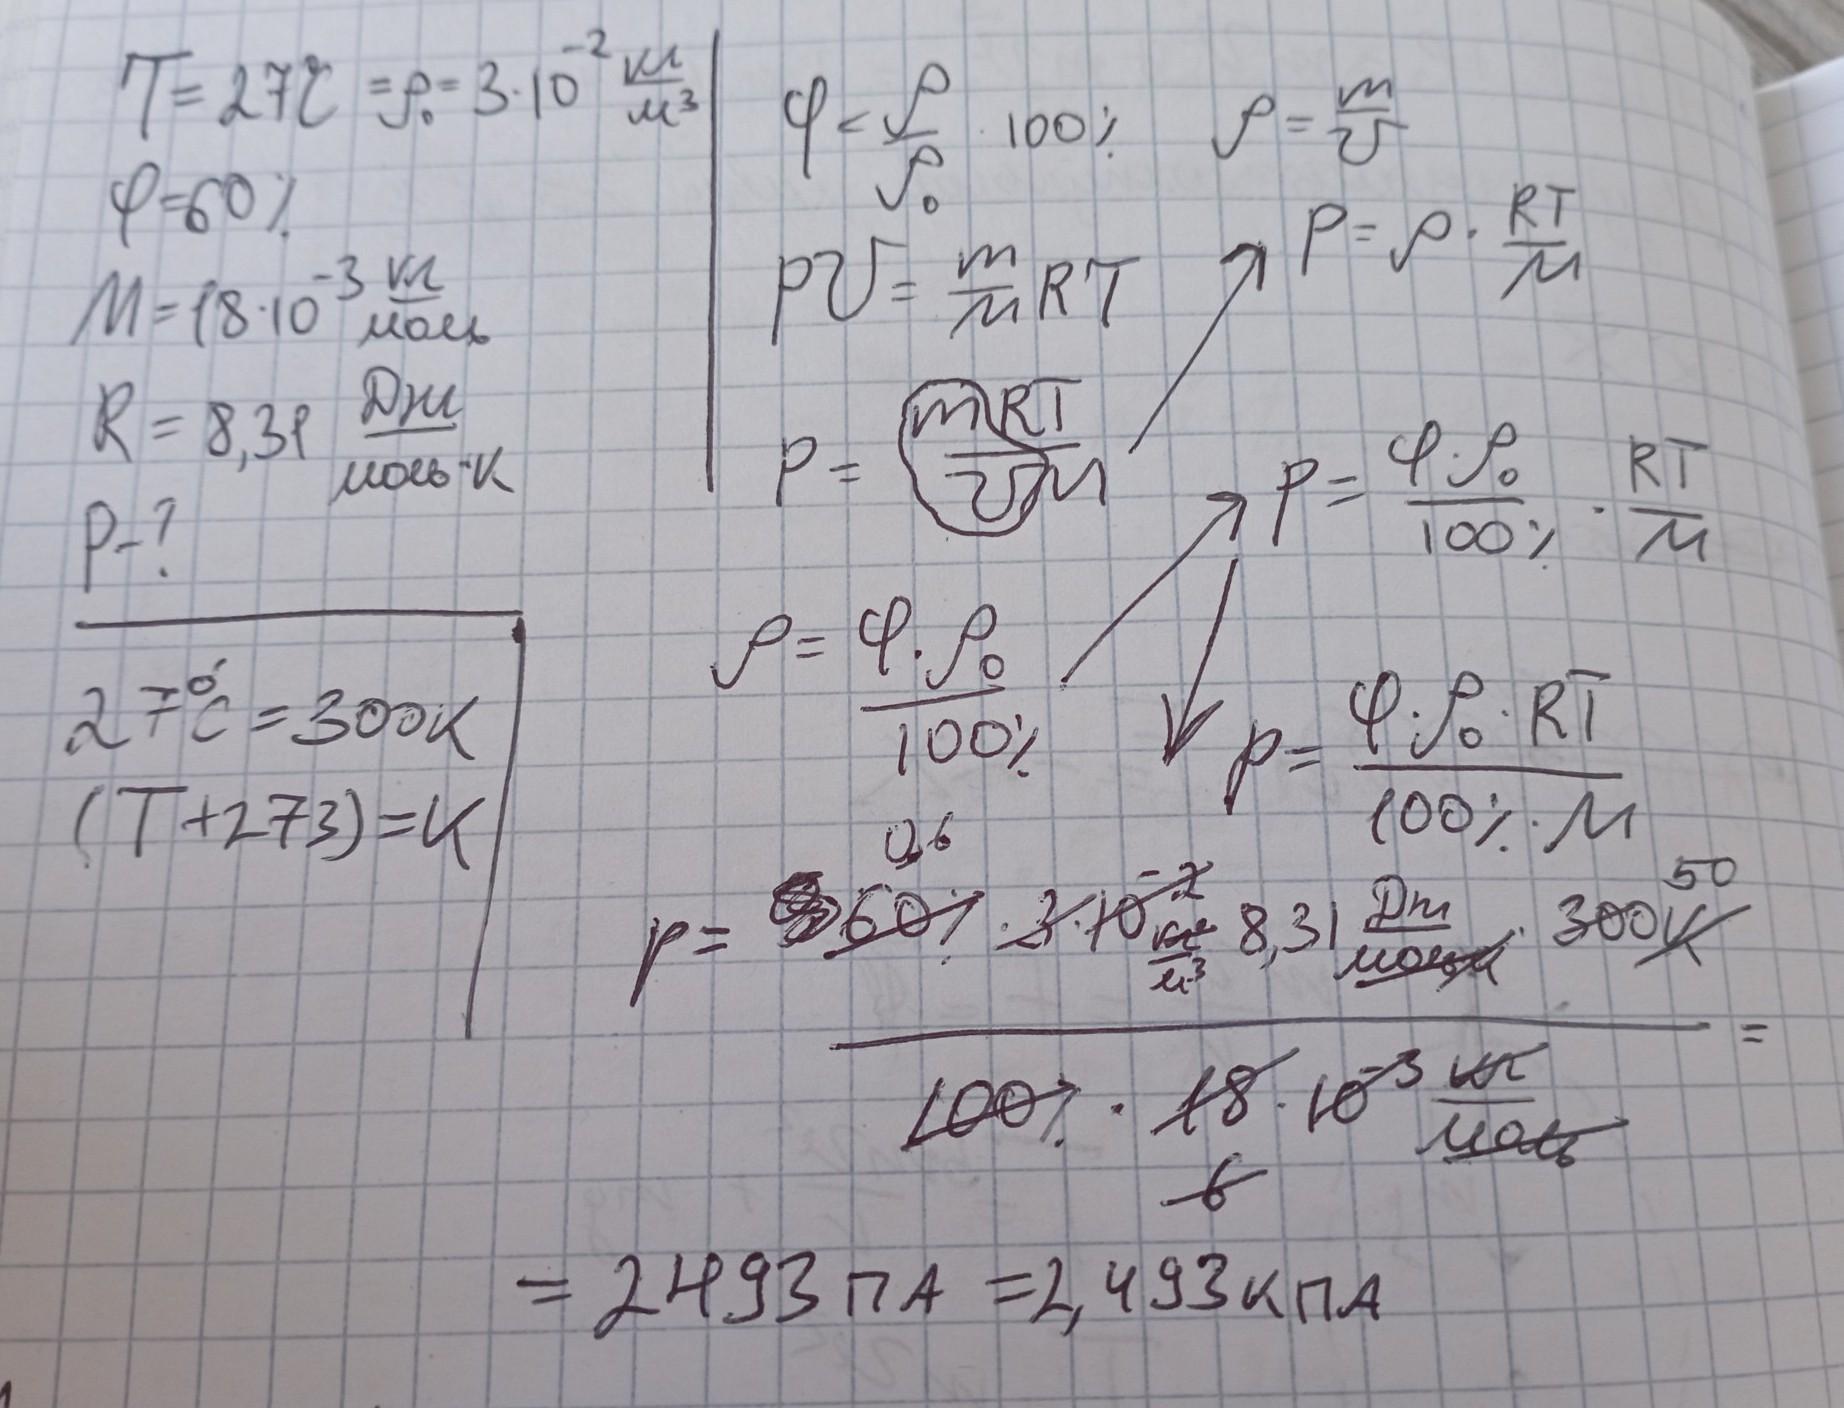 T = 27℃ = ρ₀ = 3·10⁻² кг/м³
φ = 60%
M = 18·10⁻³ кг/моль
R = 8,31 Дж/моль·К
P - ?
27°C = 300К
(T + 273) = К
φ < ρ/ρ₀ · 100% ρ = m/V
pV = m/M RT P = ρ · RT/M
P = mRT/VM
p = φ·ρ₀/100% · RT/M
ρ = φ·ρ₀/100%
p = φ·ρ₀·RT/100%·M
0,6 50
p = 60% · 3·10⁻² кг/м³ 8,31 Дж/моль·К · 300К
100% · 18·10⁻³ кг/моль =
6
= 2493 ПА = 2,493 кПА